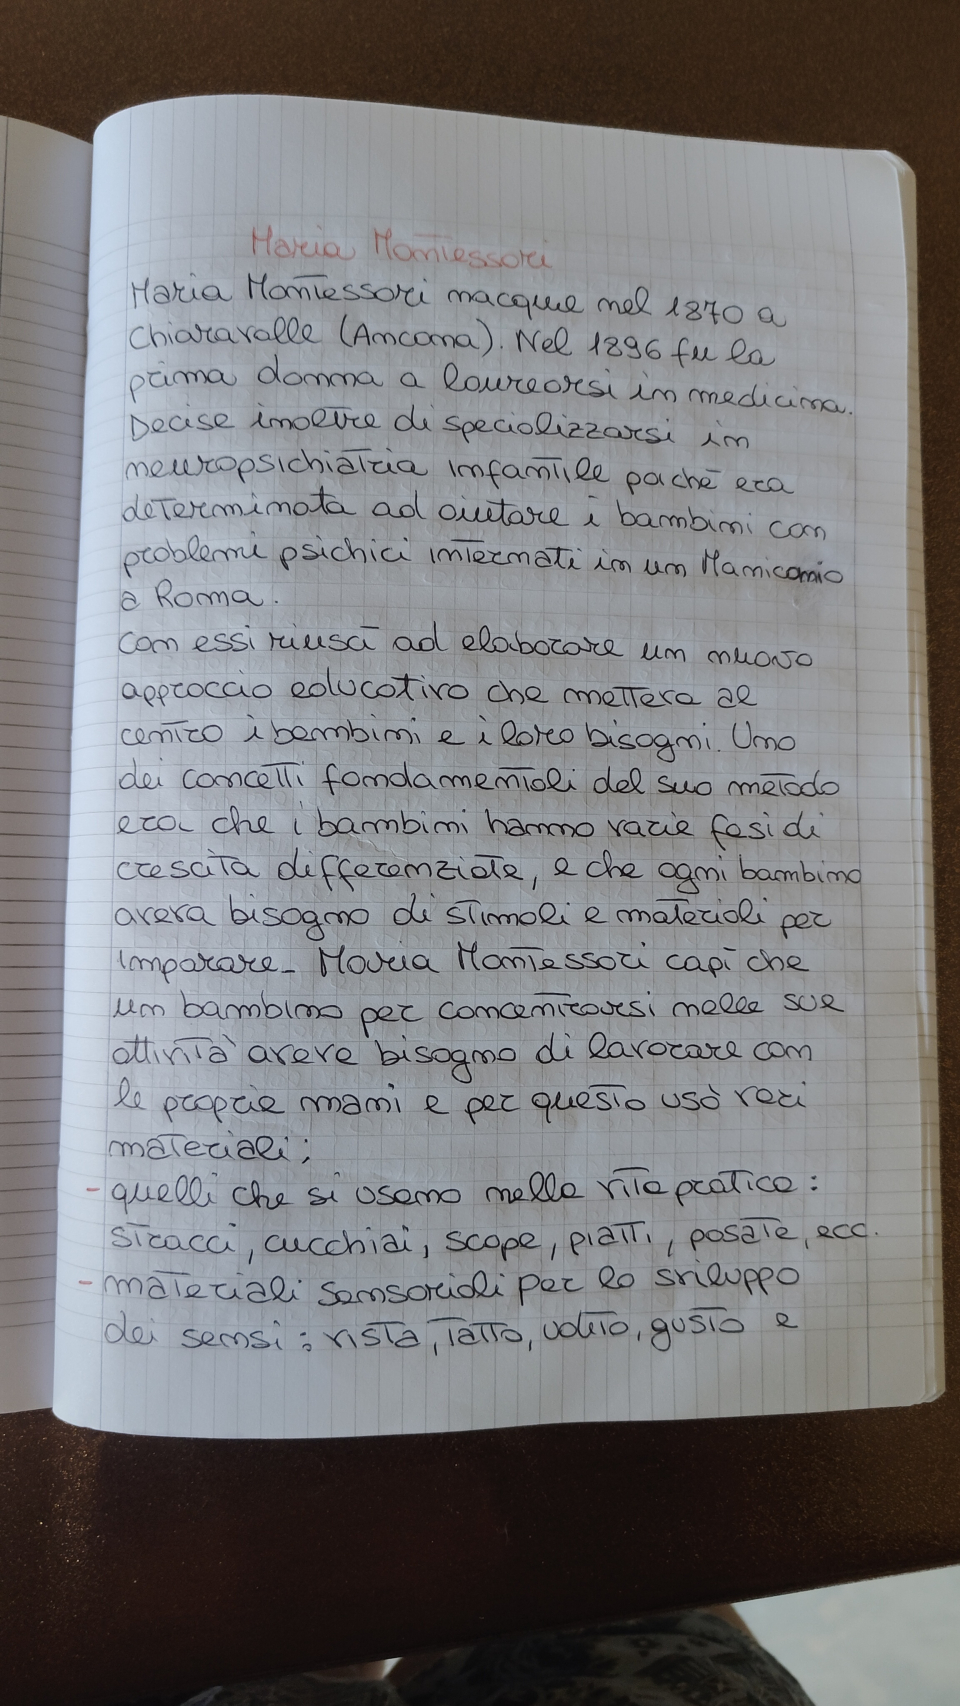 Maria Montessori
Maria Montessori nacque nel 1870 a
Chiaravalle (Ancona). Nel 1896 fu la
prima donna a laurearsi in medicina.
Decise inoltre di specializzarsi in
neuropsichiatria infantile poiché era
determinata ad aiutare i bambini con
problemi psichici internati in un Manicomio
a Roma.
Con essi riuscì ad elaborare un nuovo
approccio educativo che metteva al
centro i bambini e i loro bisogni. Uno
dei concetti fondamentali del suo metodo
era che i bambini hanno varie fasi di
crescita differenziate, e che ogni bambino
aveva bisogno di stimoli e materiali per
imparare. Maria Montessori capì che
un bambino per concentrarsi nelle sue
attività aveve bisogno di lavorare con
le proprie mani e per questo usò vari
materiali;
- quelli che si usano nella vita pratica:
stracci, cucchiai, scope, piatti, posate, ecc.
- materiali sensoriali per lo sviluppo
dei sensi: vista, tatto, udito, gusto e